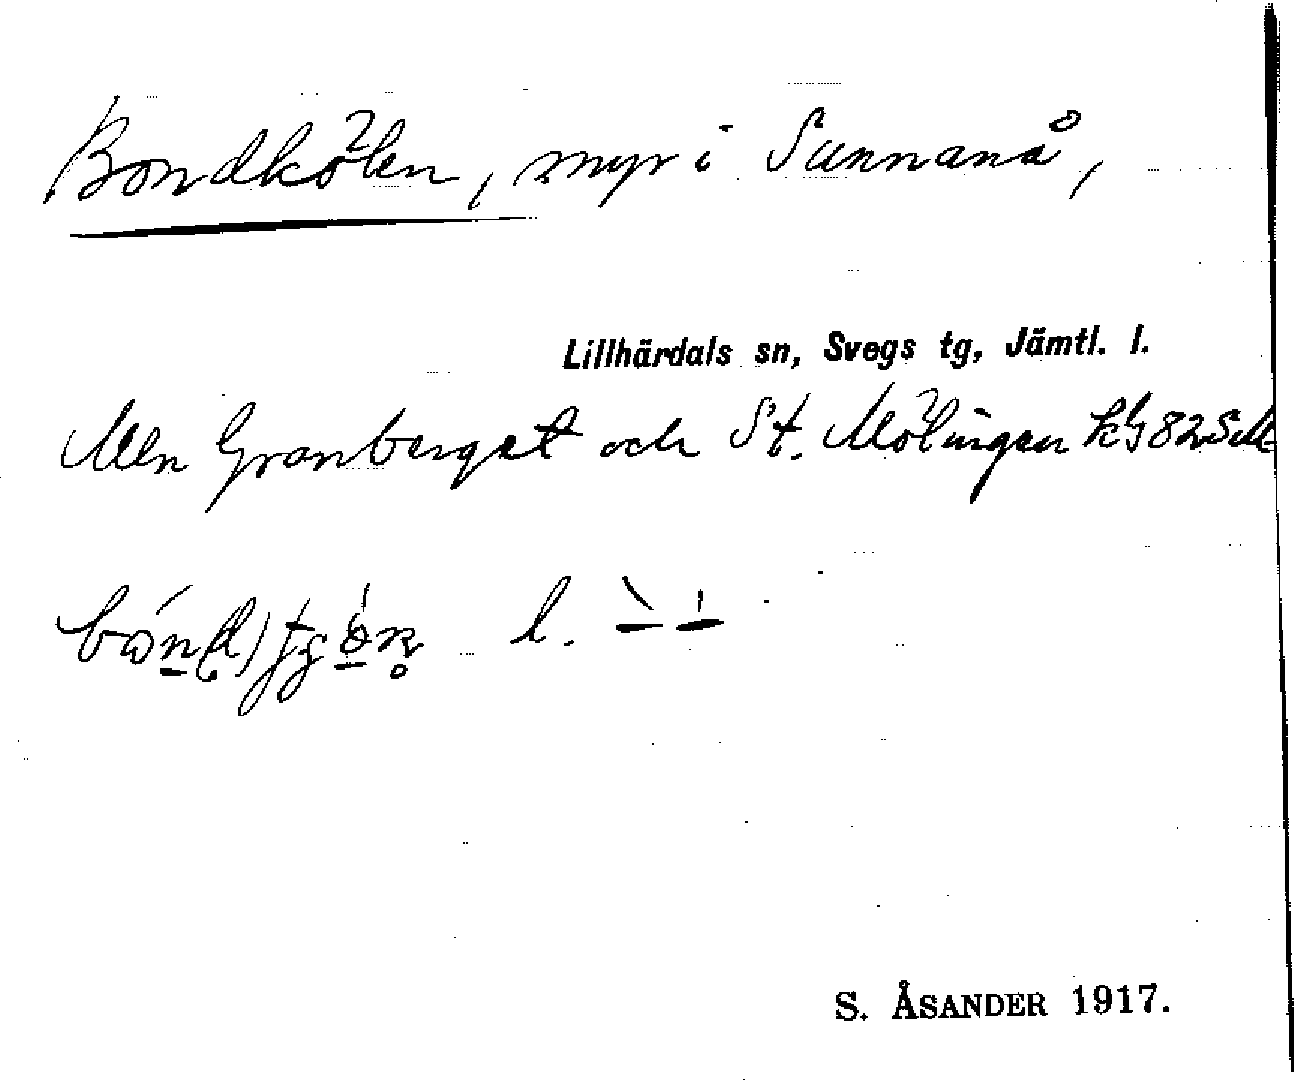 Bondkölen, myr i Sunnanå,
Lillhärdals sn, Svegs tg, Jämtl. l.
Mln Granberget och St. Mölingen
l.
S. ÅSANDER 1917.